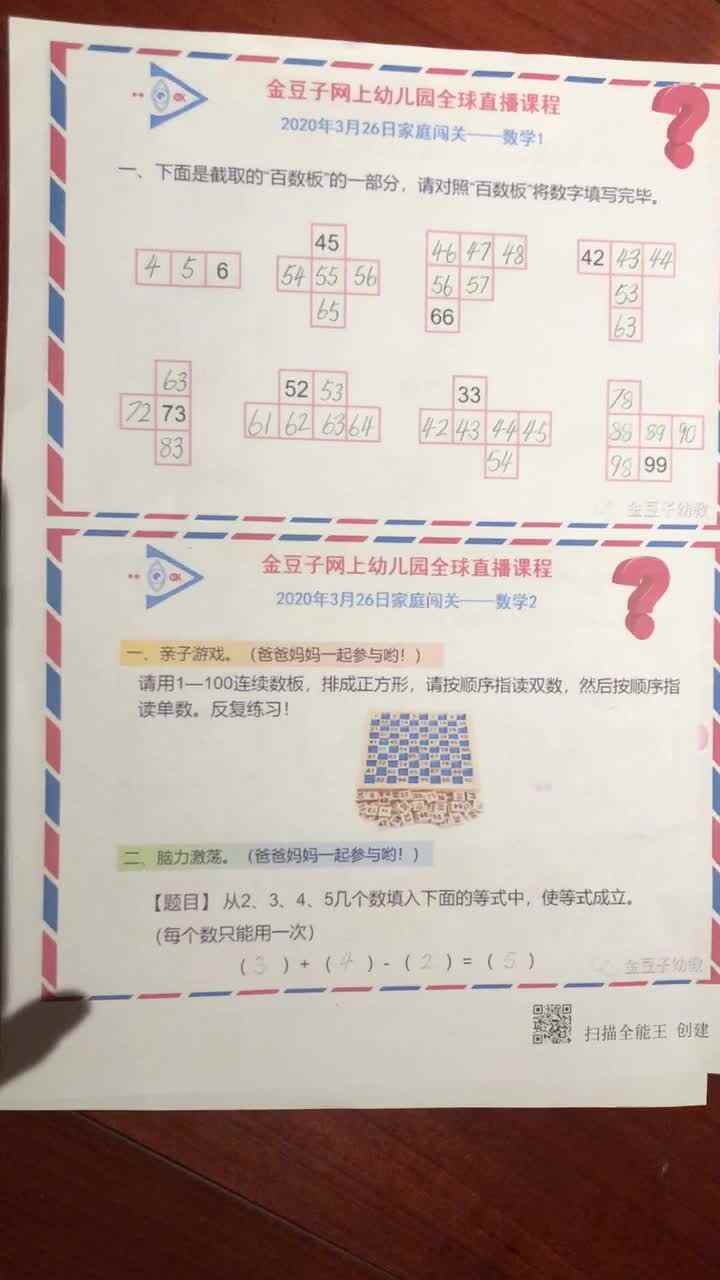 金豆子网上幼儿园全球直播课程
2020年3月26日家庭闯关——数学1
一、下面是截取的“百数板”的一部分，请对照“百数板”将数字填写完毕。
45
46 47 48
42 43 44
4 5 6
54 55 56
56 57
53
65
66
63
63
52 53
33
78
72 73
61 62 63 64
42 43 44 45
88 89 90
83
54
98 99
金豆子幼教
金豆子网上幼儿园全球直播课程
2020年3月26日家庭闯关——数学2
一、亲子游戏。（爸爸妈妈一起参与哟！）
请用1—100连续数板，排成正方形，请按顺序指读双数，然后按顺序指
读单数。反复练习！
二、脑力激荡。（爸爸妈妈一起参与哟！）
【题目】从2、3、4、5几个数填入下面的等式中，使等式成立。
（每个数只能用一次）
（3）+（4）-（2）=（5）
金豆子幼教
扫描全能王 创建